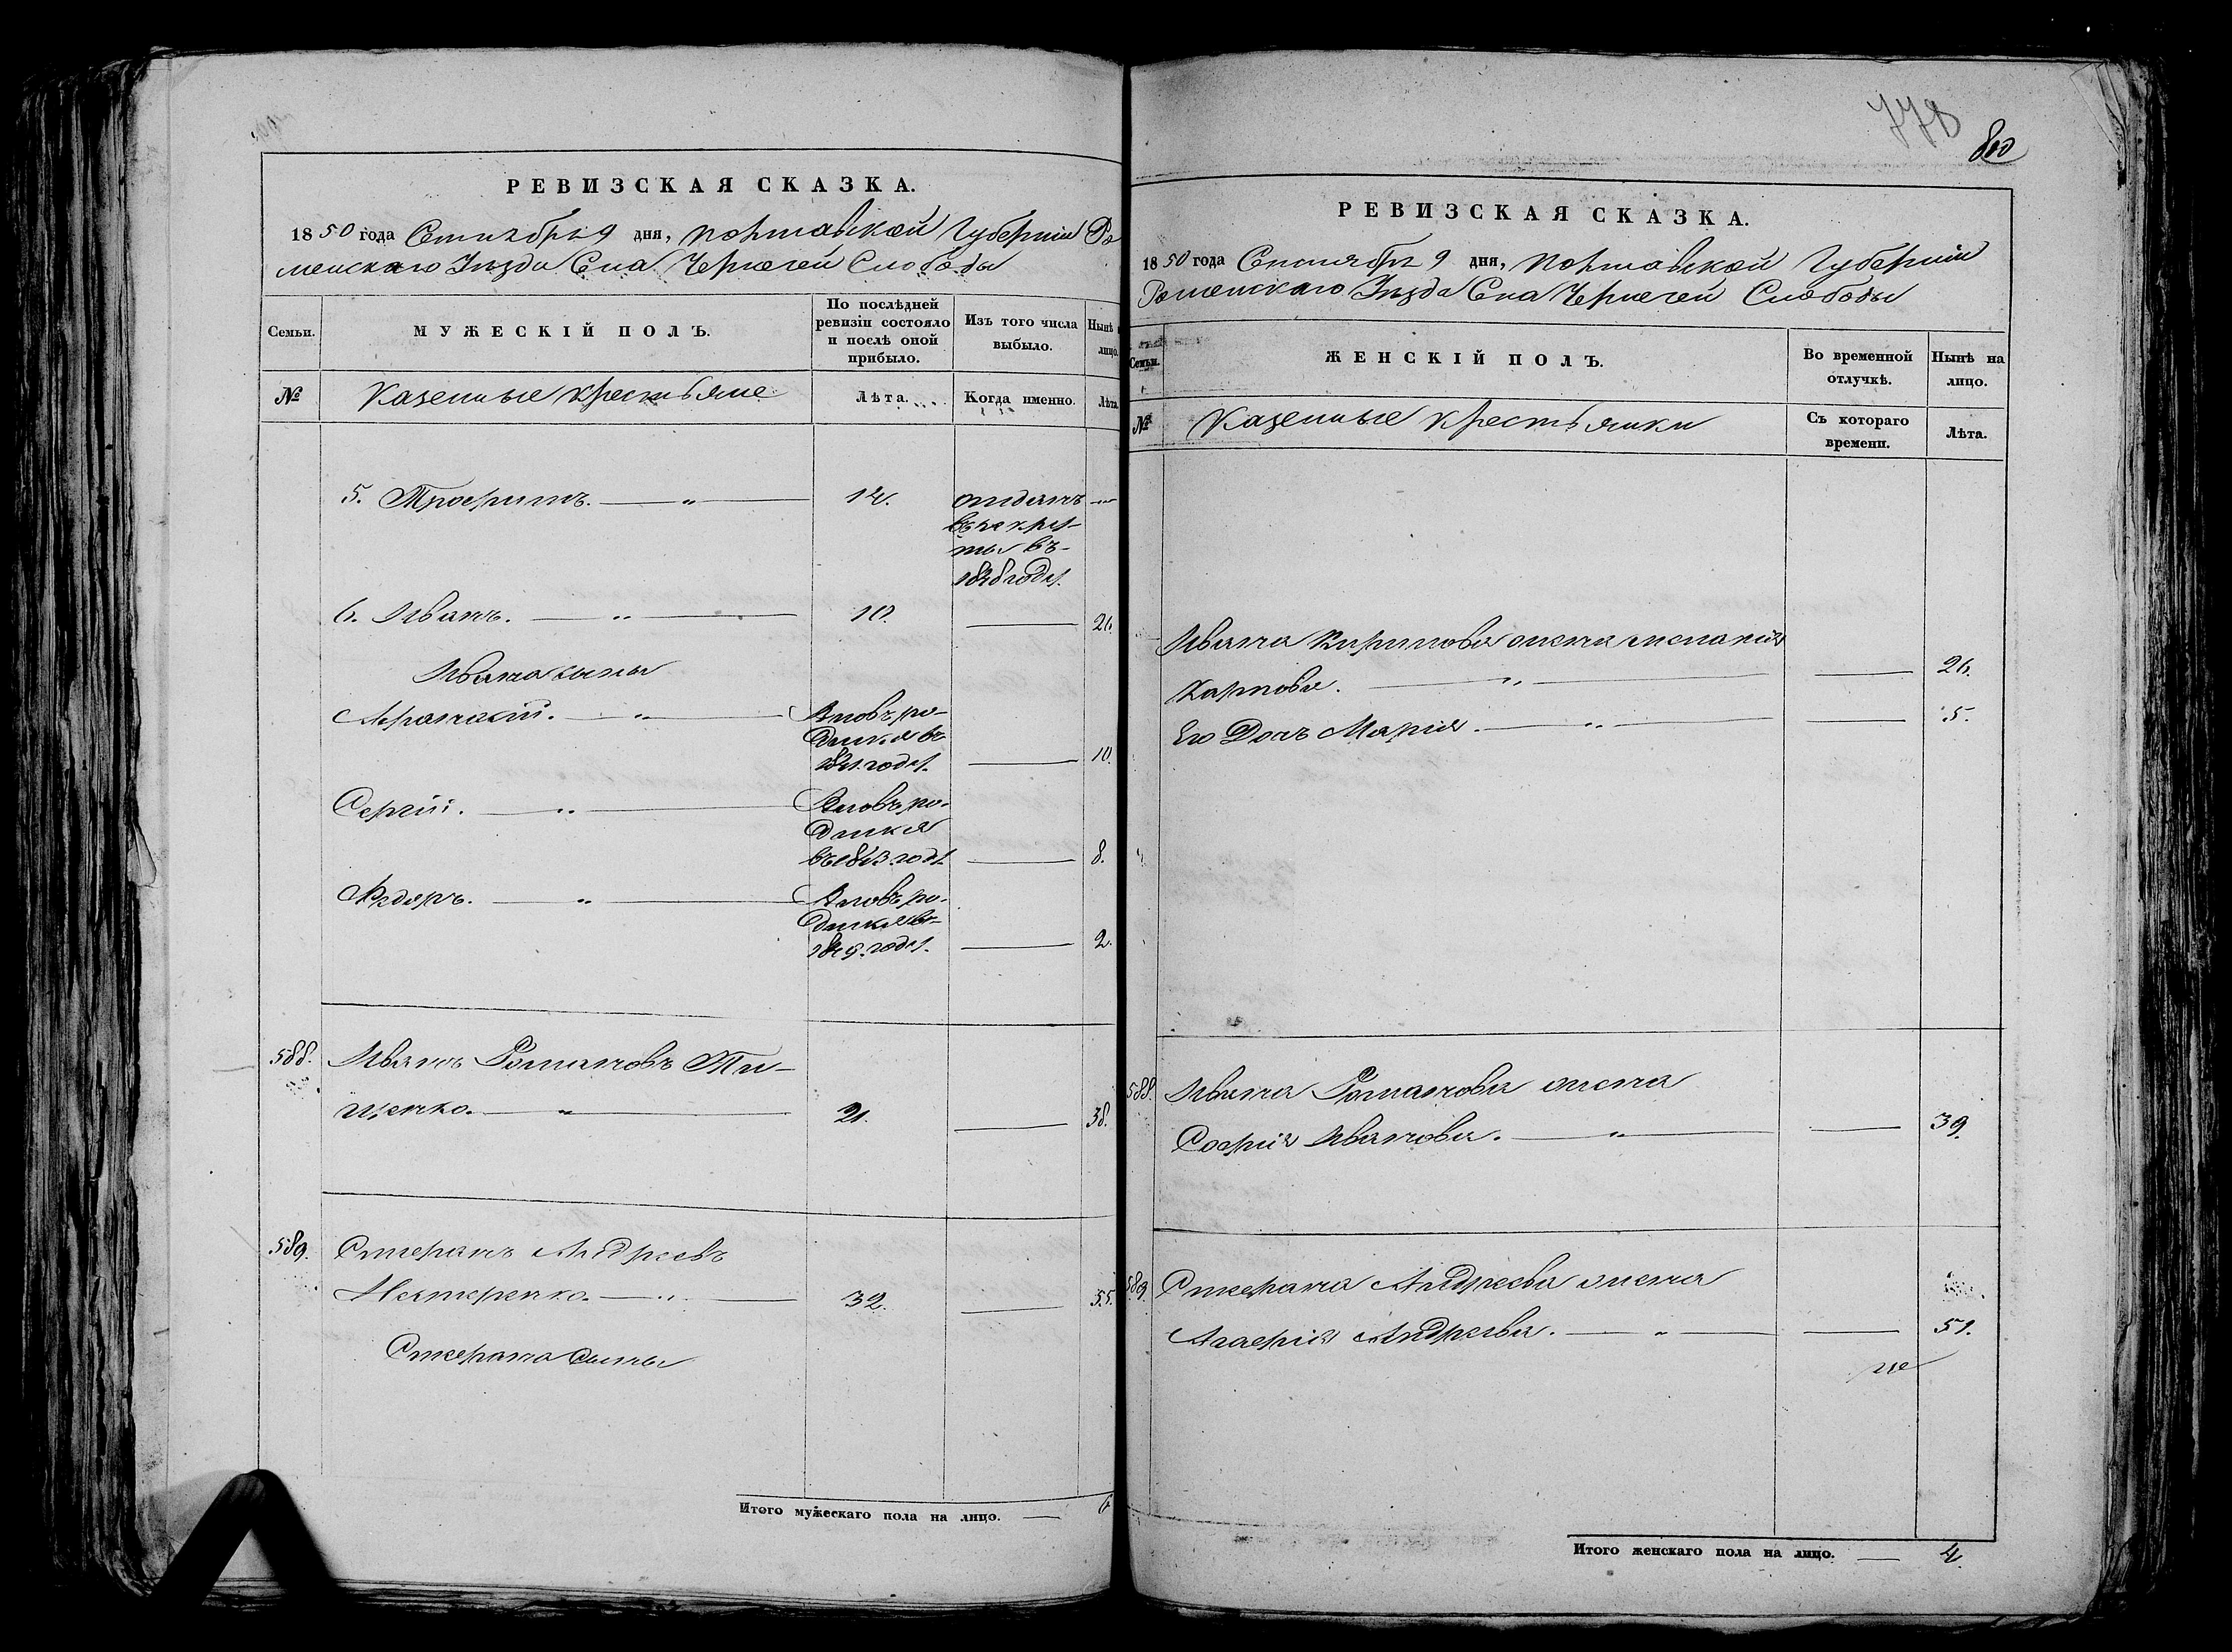 РЕВИЗСКАЯ СКАЗКА.
1850 года Сентября 9 дня, Полтавской Губернiи Ро
менскаго Уѣзда Села Чернечей Слободы
Семьи.
МУЖЕСКІЙ ПОЛЪ.
По послѣдней
ревизіи состояло
и послѣ оной
прибыло.
Изъ того числа
выбыло.
Нынѣ
лицо.
№
Казенные крестьяне
Лѣта.
Когда именно.
Лѣта.
5. Трофимъ. — „ — 12. отданъ —
въ рекру-
ты въ
годѣ.
6. Иванъ. — „ — 10. — 26.
Ивана сыны
Вновь ро-
дился въ
1841. годѣ. — 10.
Сергій. — „ — Вновь ро-
дился
въ 1843. годѣ — 8.
Вновь ро-
дился въ
1849. годѣ. — 2.
588. Иванъ Романовъ Ти-
щенко. — „ — 21. — 38.
589. Стефанъ Андреевъ
Нестеренко. — „ — 32. — 55.
Стефана сыны
Итого мужескаго пола на лицо. — 6
778
800
РЕВИЗСКАЯ СКАЗКА.
1850 года Сентября 9 дня, Полтавской Губернiи
Роменскаго Уѣзда Села Чернечей Слободы
Семьи.
ЖЕНСКІЙ ПОЛЪ.
Во временной
отлучкѣ.
Нынѣ на
лицо.
№
Казенные крестьянки
Съ котораго
времени.
Лѣта.
Ивана Кирилова жена Меланія
Карпова. — „ — — 26.
Его Дочь Марія. — „ — — 5.
588. Ивана Романова жена
Софія Иванова. — „ — — 39.
589. Стефана Андреева жена
Агафія Андреева. — „ — — 51.
Итого женскаго пола на лицо. — 4.